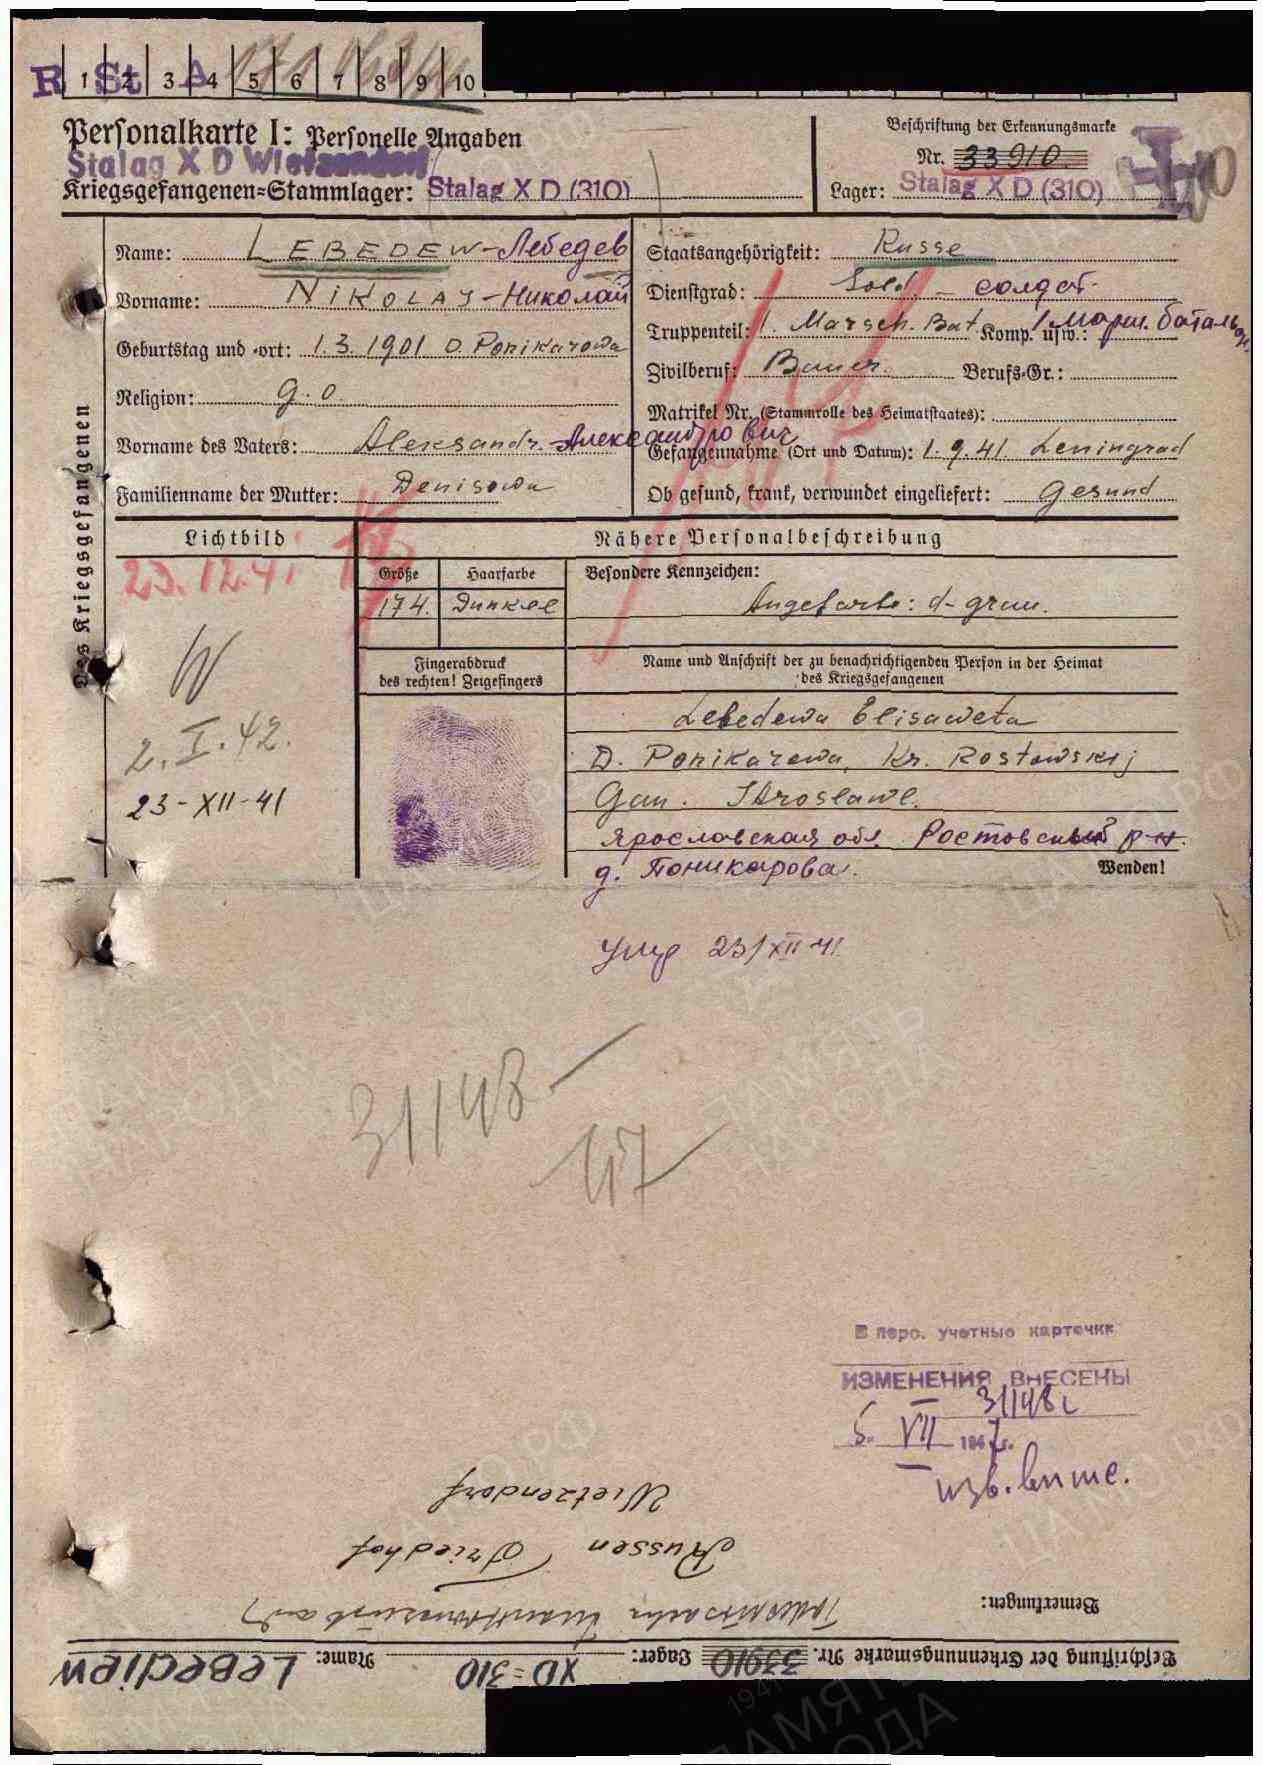 R St A
1 2 3 4 5 6 7 8 9 10
Personalkarte I: Personelle Angaben
Beschriftung der Erkennungsmarke
Stalag X D Wietzendorf
Nr. 33910
Kriegsgefangenen=Stammlager: Stalag X D (310)
Lager: Stalag X D (310)
Des Kriegsgefangenen
Name: LEBEDEW - Лебедев
Vorname: NIKOLAJ - Николай
Geburtstag und -ort: 1.3.1901 D. Ponikarowa
Religion: g. o.
Vorname des Vaters: Aleksandr. - Александрович
Familienname der Mutter: Denisowa
Staatsangehörigkeit: Russe
Dienstgrad: Sold. - солдат.
Truppenteil: 1. Marsch. Bat. Komp. usw.: 1 Марш. батальон
Zivilberuf: Bauer. Berufs-Gr.:
Matrikel Nr. (Stammrolle des Heimatstaates):
Gefangennahme (Ort und Datum): 1.9.41. Leningrad
Ob gesund, krank, verwundet eingeliefert: Gesund
Lichtbild
Nähere Personalbeschreibung
23.12.41
Größe Haarfarbe Besondere Kennzeichen:
174. Dunkel d-grau.
Fingerabdruck
des rechten! Zeigefingers
Name und Anschrift der zu benachrichtigenden Person in der Heimat
des Kriegsgefangenen
W
2.I.42.
23-XII-41
Lebedewa Elisaweta
D. Ponikarowa, Kr. Rostowskij
Gau. Jaroslawl.
Ярославская обл. Ростовский р-н.
д. Поникарова.
Wenden!
Умер 23/XII 41
31148
47
В перс. учетные карточки
ИЗМЕНЕНИЯ ВНЕСЕНЫ
31148
5. VII 1947 г.
Wietzendorf
Russen Friedhof
Bemerkungen:
Beschriftung der Erkennungsmarke Nr. 33910 Lager: XD=310 Name: Lebediew